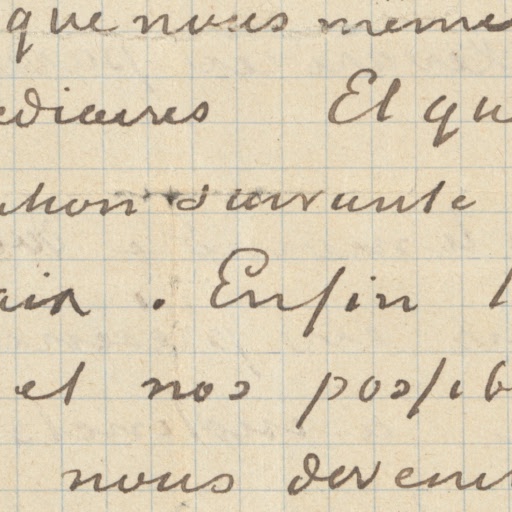 que nous même
ediaires Et qu
ation suivante
ain. Enfin l
et nos possib
nous deven